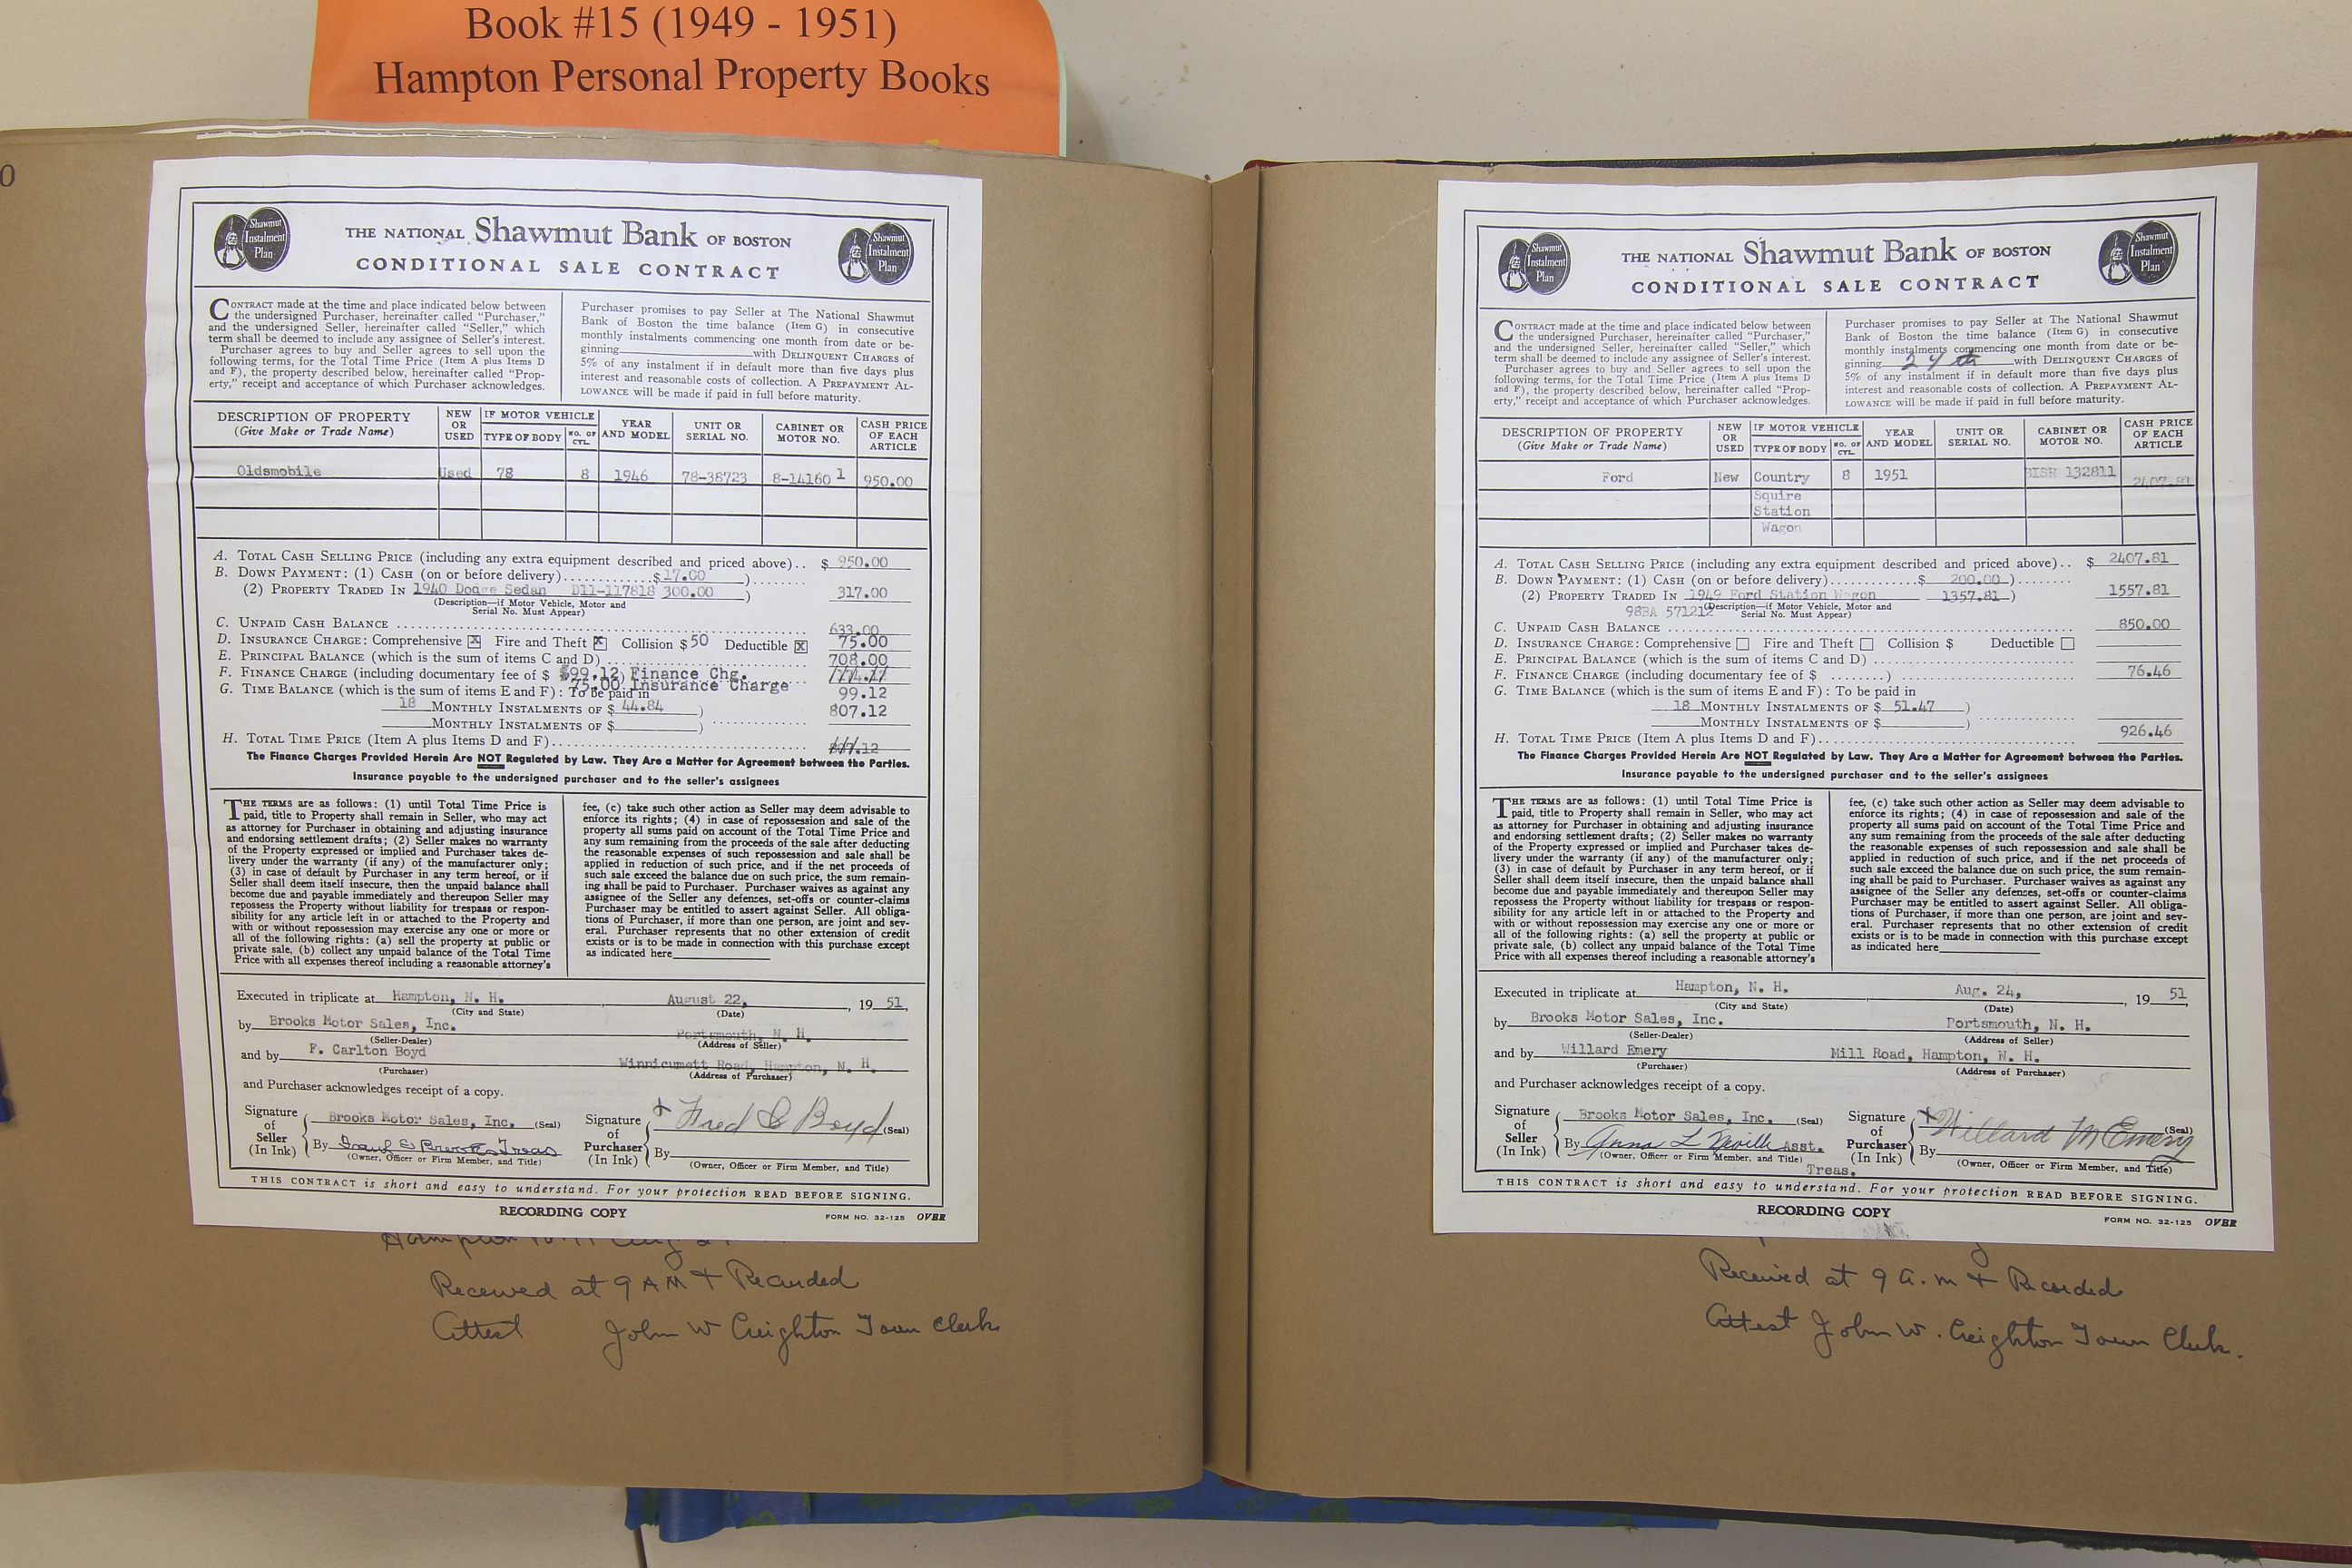 Book #15 (1949 - 1951)
Hampton Personal Property Books
0
Shawmut
Instalment
Plan
THE NATIONAL Shawmut Bank OF BOSTON
CONDITIONAL SALE CONTRACT
Shawmut
Instalment
Plan
CONTRACT made at the time and place indicated below between
the undersigned Purchaser, hereinafter called “Purchaser,”
and the undersigned Seller, hereinafter called “Seller,” which
term shall be deemed to include any assignee of Seller’s interest.
Purchaser agrees to buy and Seller agrees to sell upon the
following terms, for the Total Time Price (Item A plus Items D
and F), the property described below, hereinafter called “Prop-
erty,” receipt and acceptance of which Purchaser acknowledges.
Purchaser promises to pay Seller at The National Shawmut
Bank of Boston the time balance (Item G) in consecutive
monthly instalments commencing one month from date or be-
ginning with DELINQUENT CHARGES of
5% of any instalment if in default more than five days plus
interest and reasonable costs of collection. A PREPAYMENT AL-
LOWANCE will be made if paid in full before maturity.
DESCRIPTION OF PROPERTY
(Give Make or Trade Name)
NEW OR USED
IF MOTOR VEHICLE
TYPE OF BODY
NO. OF CYL.
YEAR AND MODEL
UNIT OR SERIAL NO.
CABINET OR MOTOR NO.
CASH PRICE OF EACH ARTICLE
Oldsmobile Used 78 8 1946 78-38723 8-14160 1 950.00
A. TOTAL CASH SELLING PRICE (including any extra equipment described and priced above).. $ 950.00
B. DOWN PAYMENT: (1) CASH (on or before delivery)............$ 17.00 )........
(2) PROPERTY TRADED IN 1940 Dodge Sedan D11-117818 300.00 ) 317.00
(Description—if Motor Vehicle, Motor and
Serial No. Must Appear)
C. UNPAID CASH BALANCE ........ 633.00
D. INSURANCE CHARGE: Comprehensive x Fire and Theft x Collision $ 50 Deductible x 75.00
E. PRINCIPAL BALANCE (which is the sum of items C and D) ........ 708.00
F. FINANCE CHARGE (including documentary fee of $ $99.12) Finance Chg.
75.00 Insurance Charge
G. TIME BALANCE (which is the sum of items E and F): To be paid in 99.12
18 MONTHLY INSTALMENTS OF $ 44.84 ) 807.12
MONTHLY INSTALMENTS OF $ ) ........
H. TOTAL TIME PRICE (Item A plus Items D and F)........
The Finance Charges Provided Herein Are NOT Regulated by Law. They Are a Matter for Agreement between the Parties.
Insurance payable to the undersigned purchaser and to the seller’s assignees
THE TERMS are as follows: (1) until Total Time Price is
paid, title to Property shall remain in Seller, who may act
as attorney for Purchaser in obtaining and adjusting insurance
and endorsing settlement drafts; (2) Seller makes no warranty
of the Property expressed or implied and Purchaser takes de-
livery under the warranty (if any) of the manufacturer only;
(3) in case of default by Purchaser in any term hereof, or if
Seller shall deem itself insecure, then the unpaid balance shall
become due and payable immediately and thereupon Seller may
repossess the Property without liability for trespass or respon-
sibility for any article left in or attached to the Property and
with or without repossession may exercise any one or more or
all of the following rights: (a) sell the property at public or
private sale, (b) collect any unpaid balance of the Total Time
Price with all expenses thereof including a reasonable attorney’s
fee, (c) take such other action as Seller may deem advisable to
enforce its rights; (4) in case of repossession and sale of the
property all sums paid on account of the Total Time Price and
any sum remaining from the proceeds of the sale after deducting
the reasonable expenses of such repossession and sale shall be
applied in reduction of such price, and if the net proceeds of
such sale exceed the balance due on such price, the sum remain-
ing shall be paid to Purchaser. Purchaser waives as against any
assignee of the Seller any defences, set-offs or counter-claims
Purchaser may be entitled to assert against Seller. All obliga-
tions of Purchaser, if more than one person, are joint and sev-
eral. Purchaser represents that no other extension of credit
exists or is to be made in connection with this purchase except
as indicated here
Executed in triplicate at Hampton, N. H. August 22, , 19 51,
(City and State) (Date)
by Brooks Motor Sales, Inc. Portsmouth, N. H.
(Seller-Dealer) (Address of Seller)
and by F. Carlton Boyd Winnicumett Road, Hampton, N. H.
(Purchaser) (Address of Purchaser)
and Purchaser acknowledges receipt of a copy.
Signature of Seller (In Ink) Brooks Motor Sales, Inc. (Seal)
By Brooks Treas
(Owner, Officer or Firm Member, and Title)
Signature of Purchaser (In Ink) x Fred C Boyd (Seal)
By
(Owner, Officer or Firm Member, and Title)
THIS CONTRACT is short and easy to understand. For your protection READ BEFORE SIGNING.
RECORDING COPY
FORM NO. 32-125 OVER
Received at 9 AM + Recorded
Attest John W Creighton Town Clerk
Shawmut
Instalment
Plan
THE NATIONAL Shawmut Bank OF BOSTON
CONDITIONAL SALE CONTRACT
Shawmut
Instalment
Plan
CONTRACT made at the time and place indicated below between
the undersigned Purchaser, hereinafter called “Purchaser,”
and the undersigned Seller, hereinafter called “Seller,” which
term shall be deemed to include any assignee of Seller’s interest.
Purchaser agrees to buy and Seller agrees to sell upon the
following terms, for the Total Time Price (Item A plus Items D
and F), the property described below, hereinafter called “Prop-
erty,” receipt and acceptance of which Purchaser acknowledges.
Purchaser promises to pay Seller at The National Shawmut
Bank of Boston the time balance (Item G) in consecutive
monthly instalments commencing one month from date or be-
ginning 24 th with DELINQUENT CHARGES of
5% of any instalment if in default more than five days plus
interest and reasonable costs of collection. A PREPAYMENT AL-
LOWANCE will be made if paid in full before maturity.
DESCRIPTION OF PROPERTY
(Give Make or Trade Name)
NEW OR USED
IF MOTOR VEHICLE
TYPE OF BODY
NO. OF CYL.
YEAR AND MODEL
UNIT OR SERIAL NO.
CABINET OR MOTOR NO.
CASH PRICE OF EACH ARTICLE
Ford New Country 8 1951 132811 2407.81
Squire
Station
Wagon
A. TOTAL CASH SELLING PRICE (including any extra equipment described and priced above).. $ 2407.81
B. DOWN PAYMENT: (1) CASH (on or before delivery)............$ 200.00 )........
(2) PROPERTY TRADED IN 1949 Ford Station Wagon 1357.81 ) 1557.81
98BA 571212 (Description—if Motor Vehicle, Motor and
Serial No. Must Appear)
C. UNPAID CASH BALANCE ........ 850.00
D. INSURANCE CHARGE: Comprehensive Fire and Theft Collision $ Deductible
E. PRINCIPAL BALANCE (which is the sum of items C and D) ........
F. FINANCE CHARGE (including documentary fee of $ ........) ........ 76.46
G. TIME BALANCE (which is the sum of items E and F): To be paid in
18 MONTHLY INSTALMENTS OF $ 51.47 )
MONTHLY INSTALMENTS OF $ ) ........
H. TOTAL TIME PRICE (Item A plus Items D and F)........ 926.46
The Finance Charges Provided Herein Are NOT Regulated by Law. They Are a Matter for Agreement between the Parties.
Insurance payable to the undersigned purchaser and to the seller’s assignees
THE TERMS are as follows: (1) until Total Time Price is
paid, title to Property shall remain in Seller, who may act
as attorney for Purchaser in obtaining and adjusting insurance
and endorsing settlement drafts; (2) Seller makes no warranty
of the Property expressed or implied and Purchaser takes de-
livery under the warranty (if any) of the manufacturer only;
(3) in case of default by Purchaser in any term hereof, or if
Seller shall deem itself insecure, then the unpaid balance shall
become due and payable immediately and thereupon Seller may
repossess the Property without liability for trespass or respon-
sibility for any article left in or attached to the Property and
with or without repossession may exercise any one or more or
all of the following rights: (a) sell the property at public or
private sale, (b) collect any unpaid balance of the Total Time
Price with all expenses thereof including a reasonable attorney’s
fee, (c) take such other action as Seller may deem advisable to
enforce its rights; (4) in case of repossession and sale of the
property all sums paid on account of the Total Time Price and
any sum remaining from the proceeds of the sale after deducting
the reasonable expenses of such repossession and sale shall be
applied in reduction of such price, and if the net proceeds of
such sale exceed the balance due on such price, the sum remain-
ing shall be paid to Purchaser. Purchaser waives as against any
assignee of the Seller any defences, set-offs or counter-claims
Purchaser may be entitled to assert against Seller. All obliga-
tions of Purchaser, if more than one person, are joint and sev-
eral. Purchaser represents that no other extension of credit
exists or is to be made in connection with this purchase except
as indicated here
Executed in triplicate at Hampton, N. H. Aug. 24, , 19 51,
(City and State) (Date)
by Brooks Motor Sales, Inc. Portsmouth, N. H.
(Seller-Dealer) (Address of Seller)
and by Willard Emery Mill Road, Hampton, N. H.
(Purchaser) (Address of Purchaser)
and Purchaser acknowledges receipt of a copy.
Signature of Seller (In Ink) Brooks Motor Sales, Inc. (Seal)
By Anna L Neville Asst.
(Owner, Officer or Firm Member, and Title)
Treas.
Signature of Purchaser (In Ink) x Willard M Emery (Seal)
By
(Owner, Officer or Firm Member, and Title)
THIS CONTRACT is short and easy to understand. For your protection READ BEFORE SIGNING.
RECORDING COPY
FORM NO. 32-125 OVER
Received at 9 a.m + Recorded
Attest John W. Creighton Town Clerk.